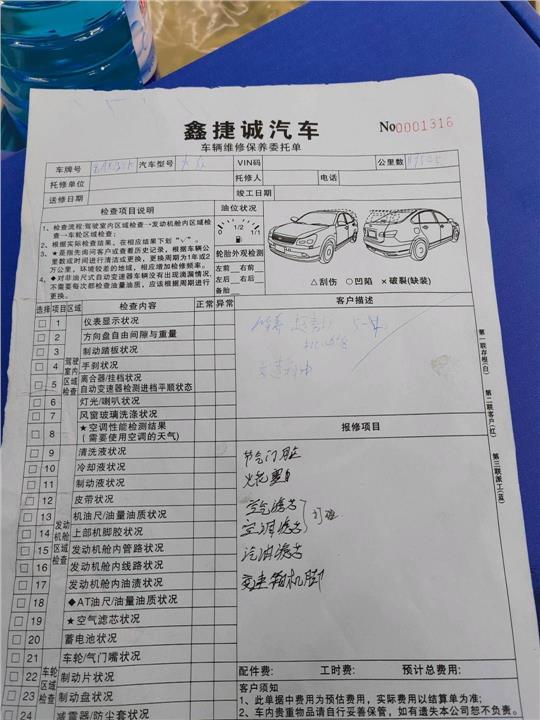 鑫捷诚汽车
No0001316
车辆维修保养委托单
车牌号 汽车型号 VIN码 公里数
托修单位 托修人 电话
送修日期 竣工日期
检查项目说明 油位状况
1、检查流程:驾驶室内区域检查→发动机舱内区域检
查→车轮区域检查;
2、根据实际检查结果,在相应结果下划“√”。
3、★是指先询问客户或查看历史记录,根据车辆公
里数或时间进行清洁或更换,更换周期为1年或2
万公里,环境较差的地域,相应增加检修频率。
4、◆对非油尺式自动变速器车辆没有出现滴漏情况,
不需要每次都检查油量油质,应该根据周期进行
更换。
1/2
轮胎外观检测
左前 右前
左后 右后
备胎
△刮伤 〇凹陷 ×破裂(缺装)
选择 项目 区域 检查内容 正常 异常
客户描述
驾驶室内区域检查
1 仪表显示状况
2 方向盘自由间隙与重量
3 制动踏板状况
4 手刹状况
5 离合器/挂档状况
自动变速器检测进档平顺状态
6 灯光/喇叭状况
7 风窗玻璃洗涤状况
8 ★空调性能检测结果
(需要使用空调的天气)
发动机舱区域检查
9 清洗液状况
10 冷却液状况
11 制动液状况
12 皮带状况
13 机油尺/油量油质状况
14 上部机脚胶状况
15 发动机舱内管路状况
16 发动机舱内线路状况
17 发动机舱内油渍状况
18 ◆AT油尺/油量油质状况
19 ★空气滤芯状况
20 蓄电池状况
车轮区域检查
21 车轮/气门嘴状况
22 制动片状况
23 制动盘状况
24 减震器/防尘套状况
报修项目
节气门脏
空气滤芯
空调滤芯
汽油滤芯
变速箱机脚
第一联存根(白)
第二联客户(红)
第三联派工(蓝)
配件费: 工时费: 预计总费用:
客户须知
1、此单据中费用为预估费用,实际费用以结算单为准;
2、车内贵重物品请自行妥善保管,如有遗失本公司恕不负责。